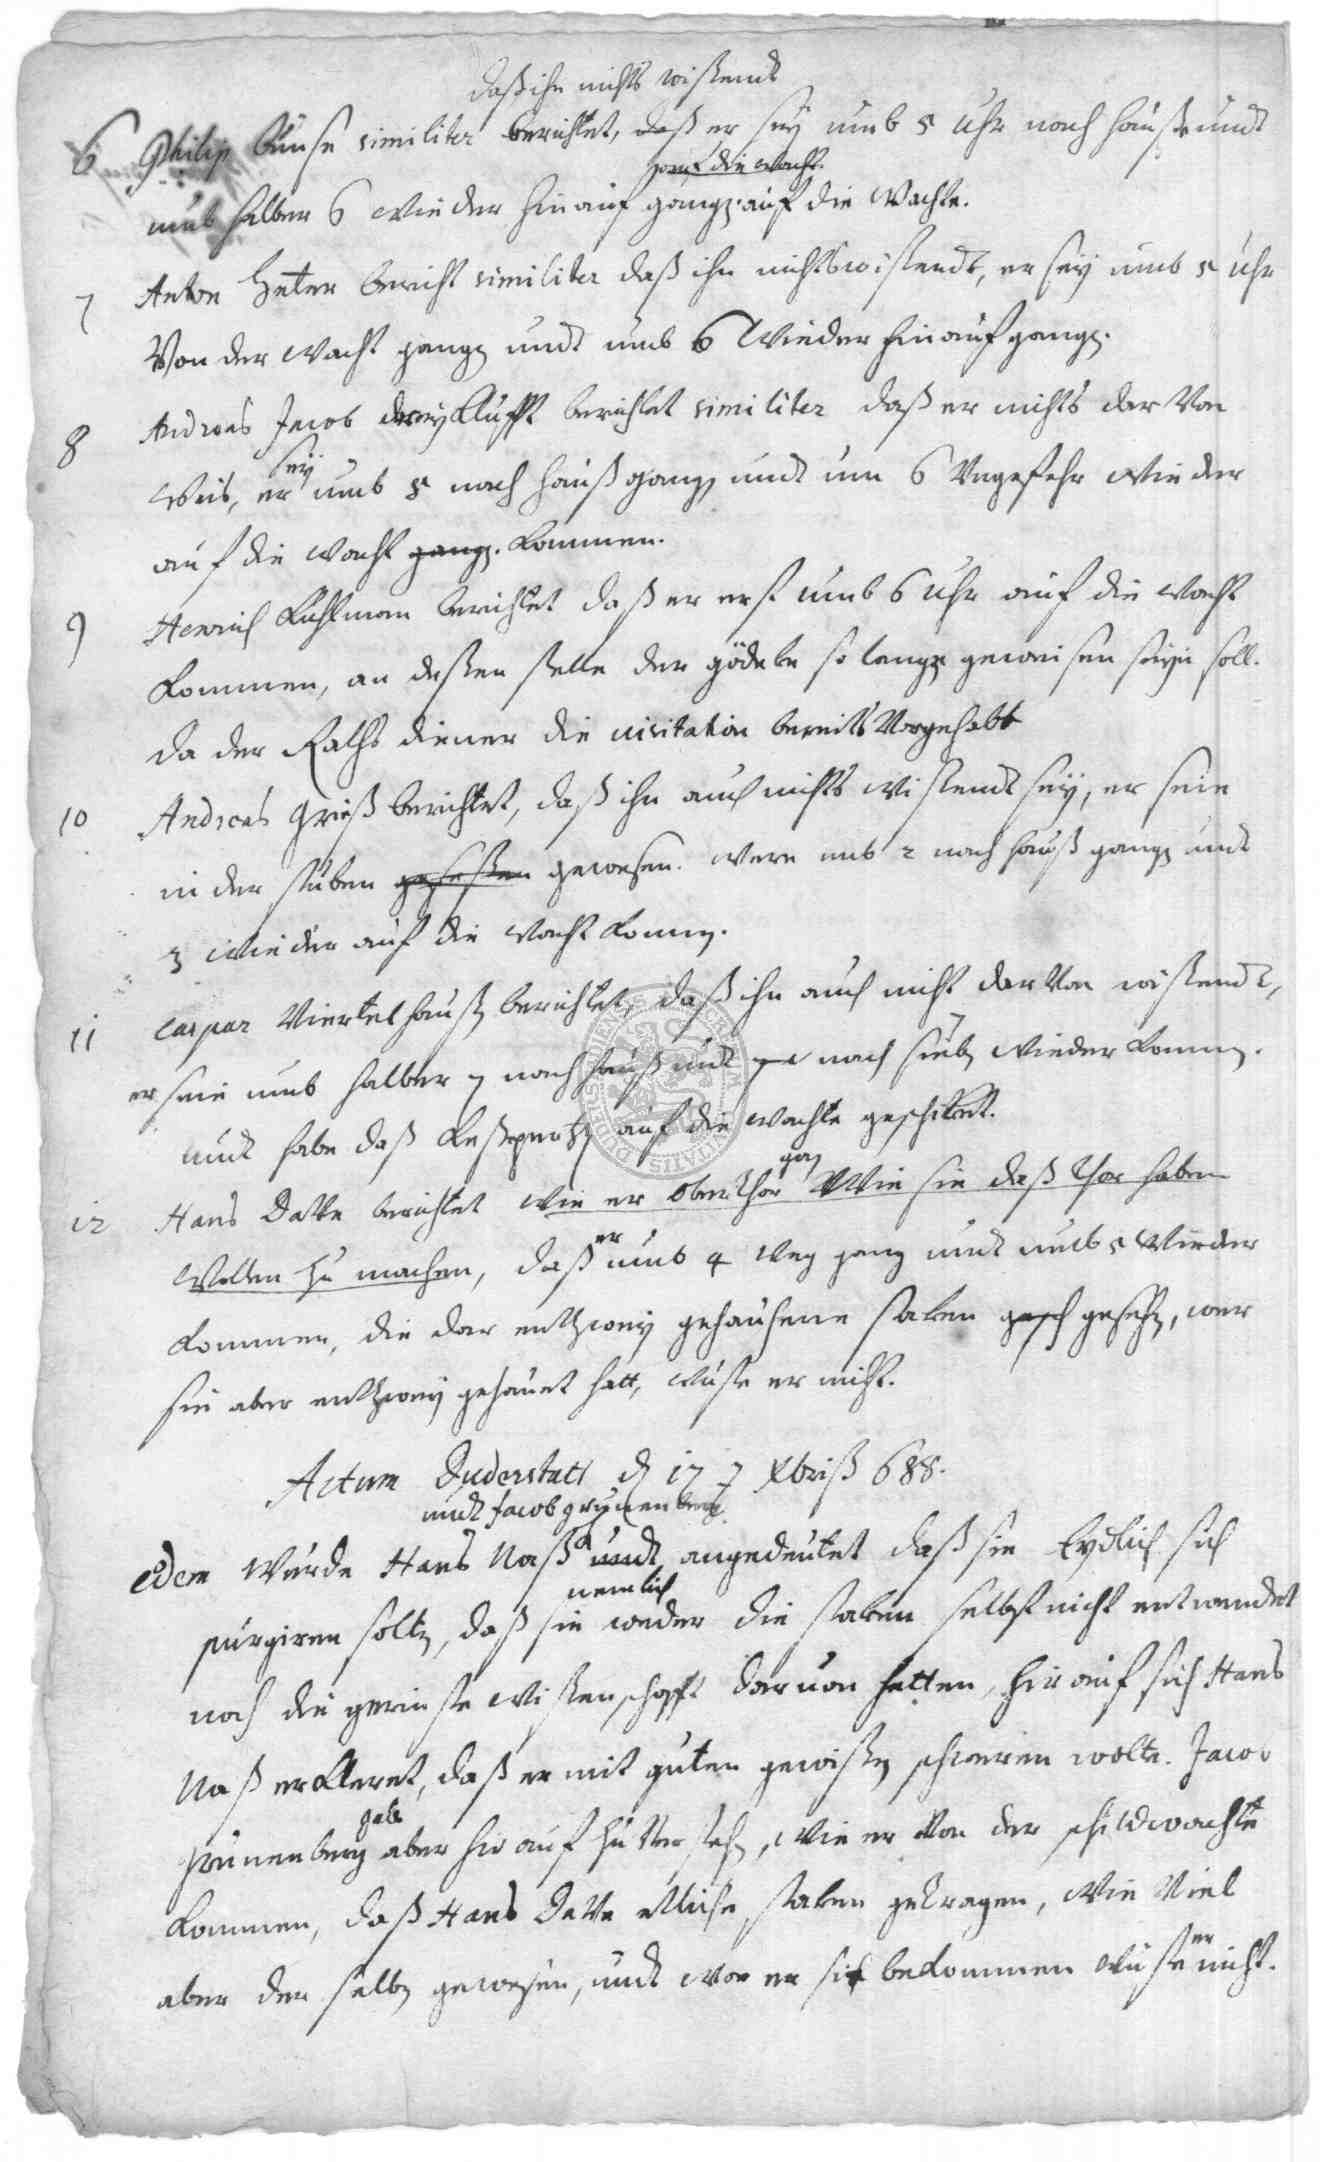 daß ihn nichts wißendt
6 Philip Kunse similiter berichtet, daß er sey umb 5 Uhr nach hauß undt
auf die wacht
umb halber 6 wieder hinauf gangen auf die Wachte.
7 Anton Heter bericht similiter daß ihn nichts wißendt, er sey umb 5 Uhr
Von der wacht gangen undt umb 6 Wieder hinauf gangen.
8 Andreas Jacob berichtet similiter daß er nichts dar Von
sey
weis, er umb 5 nach hauß gangen undt um 6 Ungefehr wieder
auf die wacht gangen. kommen.
9 Henrich Kuhlman berichtet daß er erst umb 6 Uhr auf die wacht
kommen, an deßen stelle der gödeke so lange geweisen seyn soll.
da der Raths diener die visitation bereits Vorgehabt
10 Andreas Grieß berichtet, daß ihn auch nichts wißendt sey, er seie
in der stuben geseßen gewesen. were umb 2 nach hauß gangen undt
3 wieder auf die wacht kommen.
11 Caspar Viertelhauß berichtet, daß ihn auch nicht dar Von wißendt,
er seie umb halber 7 nach hauß undt nach sieben wieder kommen.
undt habe daß auf die wachte geschicket.
gan
12 Hans Datte berichtet wie er oberthor Wie sie daß thor haben
er
Wollen zu machen, daß umb 4 weg gang undt umb 5 Wieder
kommen, die dar entzwey gehauene staken gesch gesehen, wer
sie aber entzwey gehauet hatt, wuste er nicht.
Actum Duderstatt d 17 Xbriß 688.
undt Jacob grünenberg
edem wurde Hans Naß undt angedeutet daß sie Eydtlich sich
nemlich
purgiren solten, daß sie weder die staken selbst nicht entwendet
noch die geringste wißenschafft daruon hetten, hirauf sich Hans
Naß erkleret, daß er mit guten gewißen schweren wolte. Jacob
gabe
grünenberg aber hir auf zu Verstehen, wie er Von der schildwachte
kommen, daß Hans Datte etliche staken getragen, wie Viel
er
aber der selben gewesen, undt wo er sie bekommen wuste nicht.